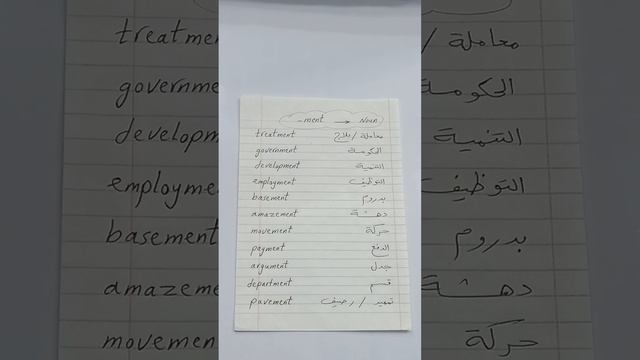 -ment → Noun
treatment معاملة / علاج
government الحكومة
development التنمية
employment التوظيف
basement بدروم
amazement دهشة
movement حركة
payment الدفع
argument جدل
department قسم
pavement تمهيد / رصيف